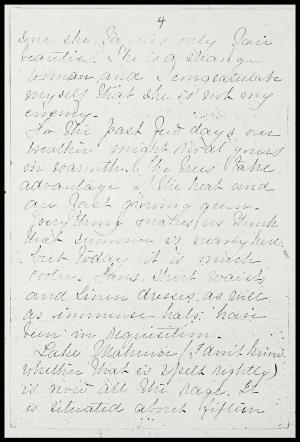 4
she favors only fair
beauties. She is a strange
woman, and I congratulate
myself that she is not my
enemy.
For the past few days, our
weather might rival yours
in warmth. The trees take
advantage of the heat and
are fast growing green.
Everything makes us think
that summer is nearly here,
but today it is much
cooler. Fans, shirt waists,
and linen dresses, as well
as immense hats, have
been in requisition.
Lake (I don't know
whether that is spelt rightly)
is now all the rage. It
is situated about fifteen